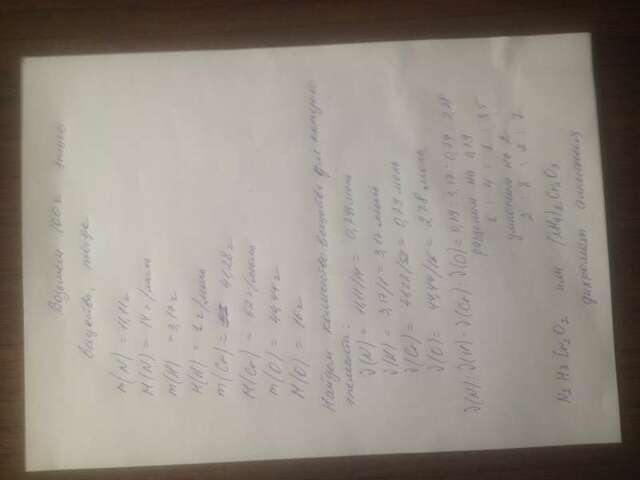 Возьмем 100 г этого
вещества, тогда
m(N) = 11,11 г
M(N) = 14 г/моль
m(H) = 3,17 г
M(H) = 1 г/моль
m(Cr) = 41,28 г
M(Cr) = 52 г/моль
m(O) = 44,44 г
M(O) = 16 г
Найдем количество вещества для каждого
элемента:
ν(N) = 11,11/14 = 0,79 моль
ν(H) = 3,17/1 = 3,17 моль
ν(Cr) = 41,28/52 = 0,79 моль
ν(O) = 44,44/16 = 2,78 моль
ν(N) : ν(H) : ν(Cr) : ν(O) = 0,79 : 3,17 : 0,79 : 2,78
разделим на 0,79
1 : 4 : 1 : 3,5
умножим на 2
2 : 8 : 2 : 7
N2H8Cr2O7 или (NH4)2Cr2O7
дихромат аммония